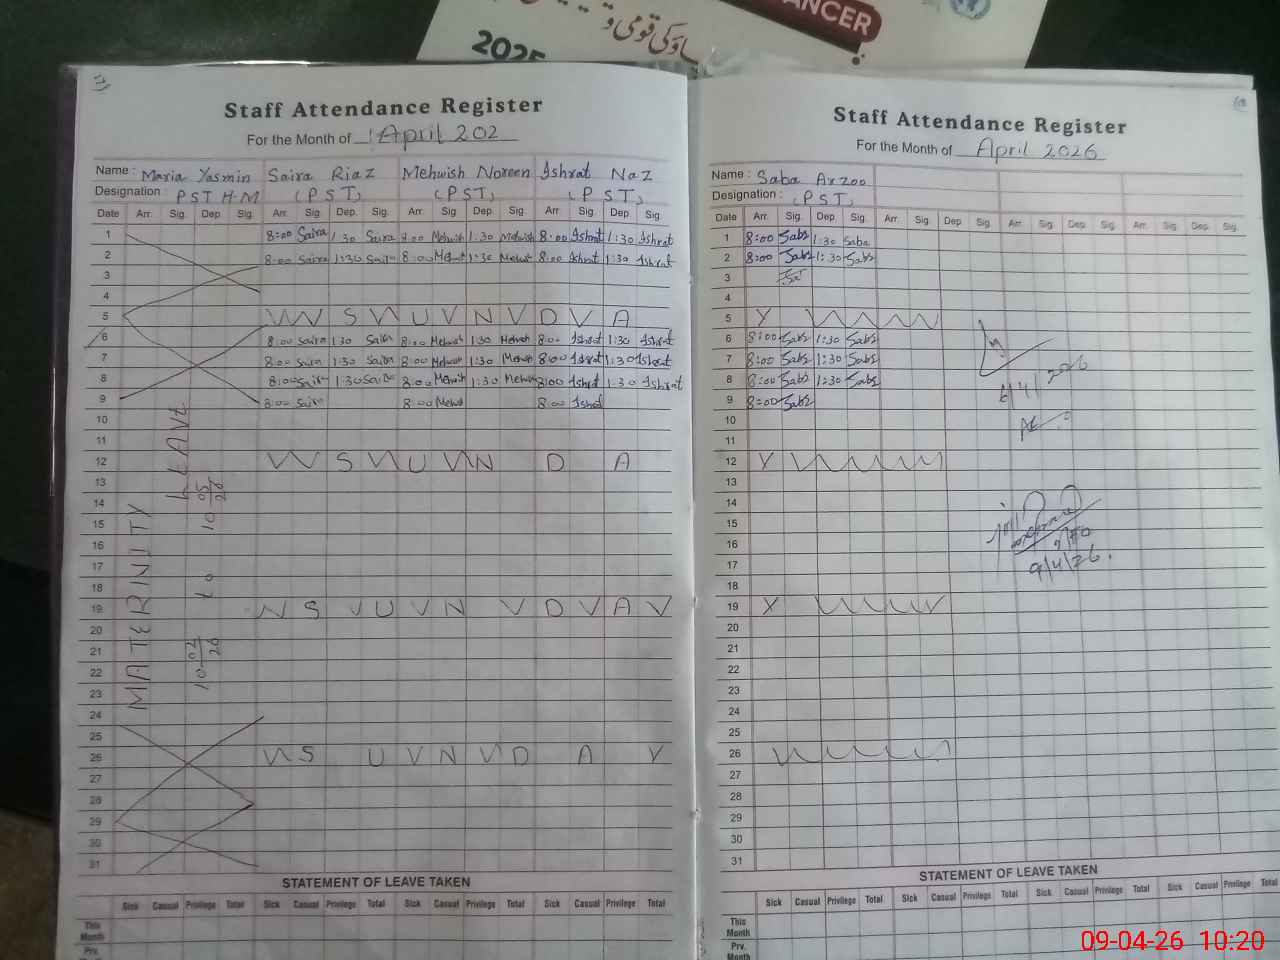 CANCER
2025
Staff Attendance Register
For the Month of April 202
Name : Maria Yasmin Saira Riaz Mehwish Noreen Ishrat Naz
Designation : PST H.M (PST) (PST) (PST)
Date Arr. Sig. Dep. Sig. Arr. Sig. Dep. Sig. Arr. Sig. Dep. Sig. Arr. Sig. Dep. Sig.
1 8:00 Saira 1:30 Saira 8:00 Mehwish 1:30 Mehwish 8:00 Ishrat 1:30 Ishrat
2 8:00 Saira 1:30 Saira 8:00 Mehwish 1:30 Mehwish 8:00 Ishrat 1:30 Ishrat
3
4
5 S U N D A
6 8:00 Saira 1:30 Saira 8:00 Mehwish 1:30 Mehwish 8:00 Ishrat 1:30 Ishrat
7 8:00 Saira 1:30 Saira 8:00 Mehwish 1:30 Mehwish 8:00 Ishrat 1:30 Ishrat
8 8:00 Saira 1:30 Saira 8:00 Mehwish 1:30 Mehwish 8:00 Ishrat 1:30 Ishrat
9 8:00 Saira 8:00 Mehwish 8:00 Ishrat
10
11
12 S U N D A
13
14
15
16
17
18
19 S U N D A
20
21
22
23
24
25
26 S U N D A Y
27
28
29
30
31
MATERINITY LEAVE
10 02/26 to 10 05/26
STATEMENT OF LEAVE TAKEN
Sick Casual Privilege Total Sick Casual Privilege Total Sick Casual Privilege Total Sick Casual Privilege Total
This Month
Prv.
Staff Attendance Register
For the Month of April 2026
Name : Saba Arzoo
Designation : (PST)
Date Arr. Sig. Dep. Sig. Arr. Sig. Dep. Sig. Arr. Sig. Dep. Sig. Arr. Sig. Dep. Sig.
1 8:00 Saba 1:30 Saba
2 8:00 Saba 1:30 Saba
3
4
5 Y
6 8:00 Saba 1:30 Saba
7 8:00 Saba 1:30 Saba
8 8:00 Saba 1:30 Saba
9 8:00 Saba
10
11
12 Y
13
14
15
16
17
18
19 Y
20
21
22
23
24
25
26
27
28
29
30
31
9/4/26.
STATEMENT OF LEAVE TAKEN
Sick Casual Privilege Total Sick Casual Privilege Total Sick Casual Privilege Total Sick Casual Privilege Total
This Month
Prv.
09-04-26 10:20